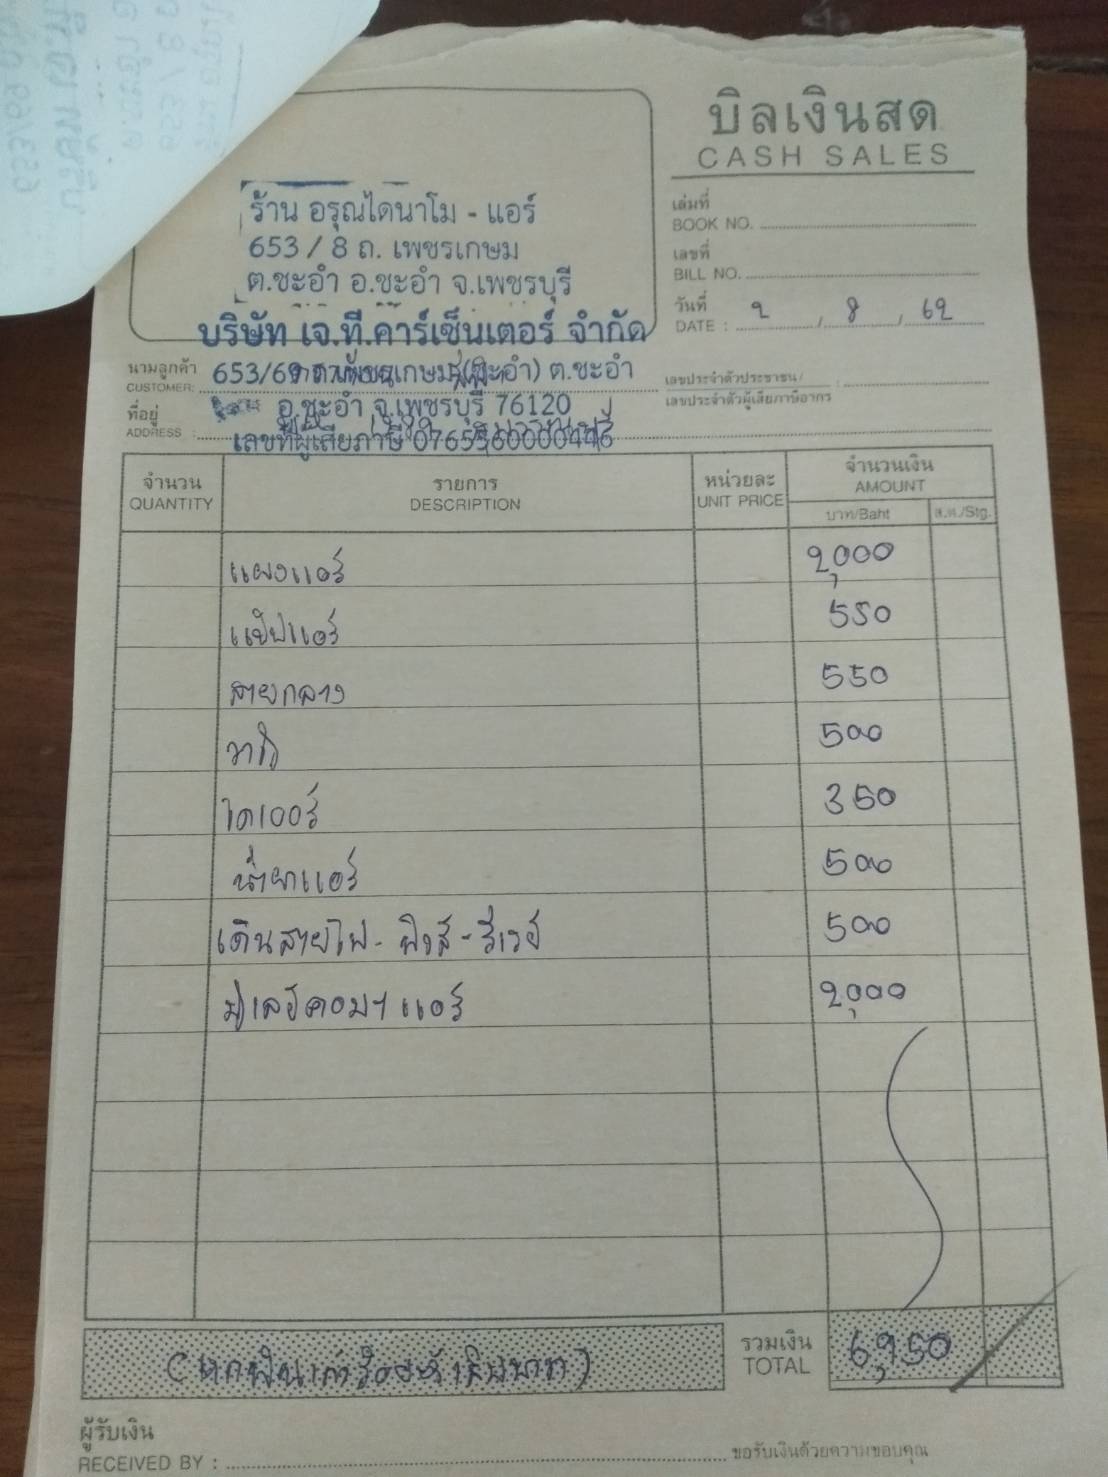 บิลเงินสด
CASH SALES
ร้าน อรุณไดนาโม - แอร์
653 / 8 ถ. เพชรเกษม
ต.ชะอำ อ.ชะอำ จ.เพชรบุรี
เล่มที่
BOOK NO.
เลขที่
BILL NO.
วันที่
DATE : 2 / 8 / 62
บริษัท เจ.ที.คาร์เซ็นเตอร์ จำกัด
นามลูกค้า
CUSTOMER:
653/69 ถ.เพชรเกษม (ชะอำ) ต.ชะอำ
เลขประจำตัวประชาชน/ :
เลขประจำตัวผู้เสียภาษีอากร
ที่อยู่
ADDRESS :
อ.ชะอำ จ.เพชรบุรี 76120
เลขที่ผู้เสียภาษี 0765560000446
จำนวน รายการ หน่วยละ จำนวนเงิน
QUANTITY DESCRIPTION UNIT PRICE AMOUNT
บาท/Baht ส.ต./Stg.
แผงแอร์ 2,000
แป๊ปแอร์ 550
สายกลาง 550
วาล์ว 500
ไดเออร์ 350
น้ำยาแอร์ 500
เดินสายไฟ - ฟิวส์ - รีเลย์ 500
มู่เลย์คอมฯ แอร์ 2,000
(หกพันเก้าร้อยห้าสิบบาท)
รวมเงิน
TOTAL
6,950
ผู้รับเงิน
RECEIVED BY :
ขอรับเงินด้วยความขอบคุณ